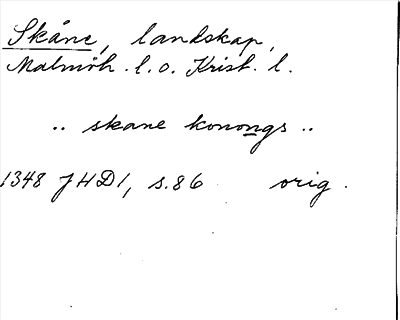 Skåne, landskap,
Malmöh. l. o. Krist. l.
.. skane konongs ..
1348 JHD1, s. 86 orig.